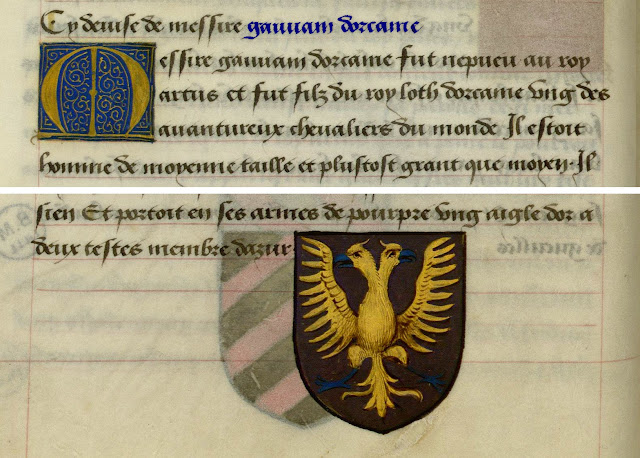 Cy deuise de messire gauuain dorcanie
Messire gauuain dorcanie fut nepueu au roy
artus et fut filz du roy loth dorcanie vng des
auantureux cheualiers du monde Il estoit
homme de moyenne taille et plustost grant que moyen. Il
sien Et portoit en ses armes de pourpre vng aigle dor a
deux testes membre dazur